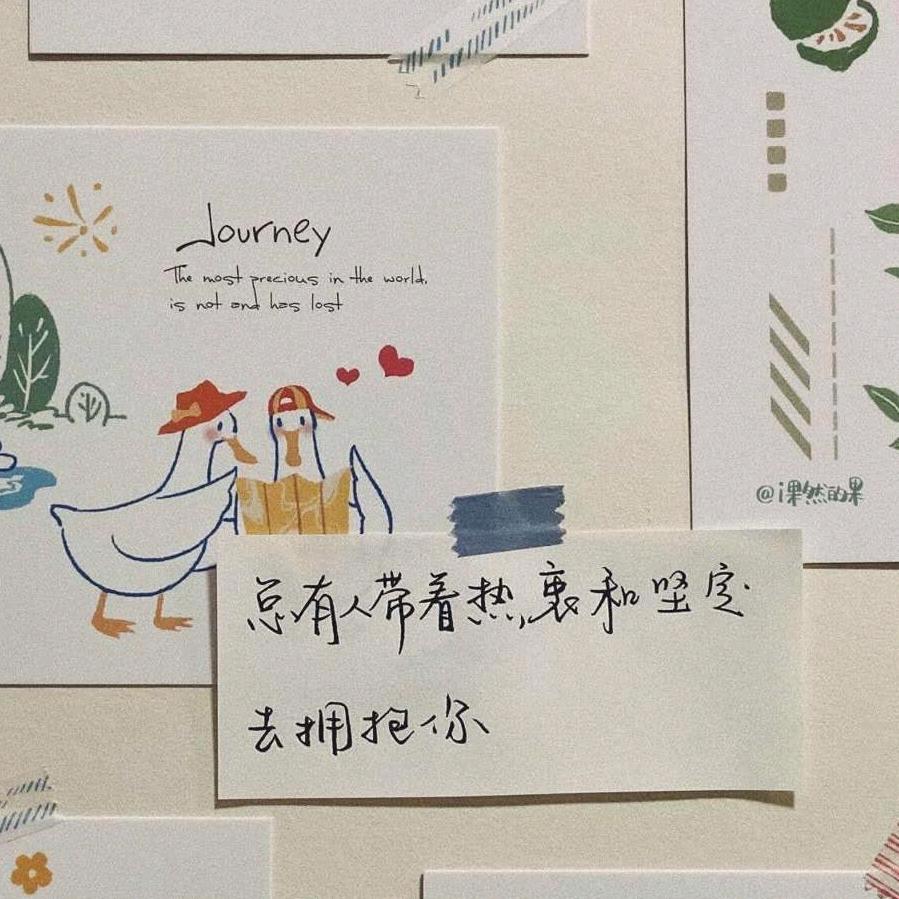 Journey
The most precious in the world,
is not and has lost
@i果然的果
总有人带着热衷和坚定
去拥抱你